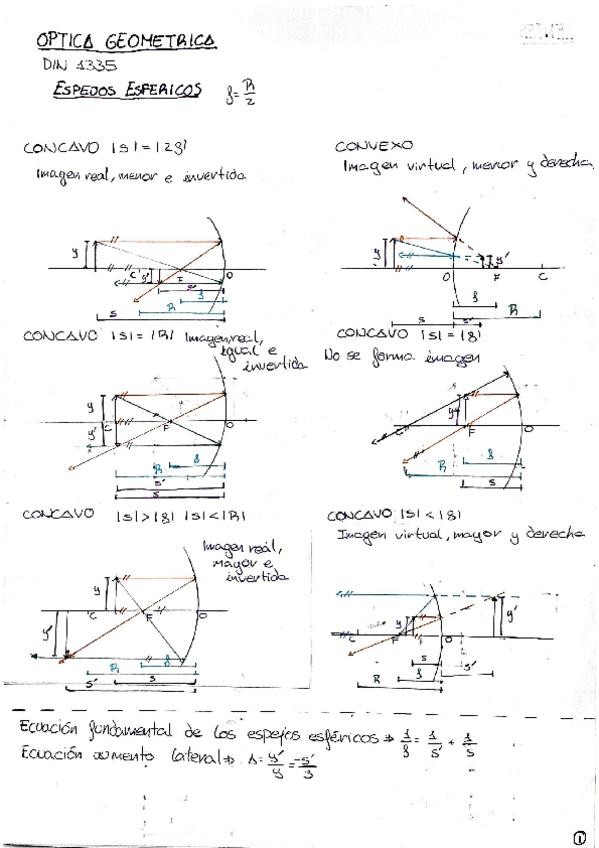 OPTICA GEOMETRICA
DIN 1335
ESPEJOS ESFERICOS f = R/2
CONCAVO |s| = |2f|
Imagen real, menor e invertida
y C y' F O
s' f
R
s
CONVEXO
Imagen virtual, menor y derecha
y y' O F C
f
R
s s'
CONCAVO |s| = |R| Imagen real,
igual e
invertida
y y' C F O
R f
s'
s
CONCAVO |s| = |f|
No se forma imagen
y C F O
R f
s
CONCAVO |s|>|f| |s|<|R|
Imagen real,
mayor e
invertida
y y' C F O
R f
s' s
CONCAVO |s| < |f|
Imagen virtual, mayor y derecha
y y' C F O
s
R f s'
Ecuación fundamental de los espejos esféricos ⇒ 1/f = 1/s' + 1/s
Ecuación aumento lateral ⇒ A = y'/y = -s'/s
1